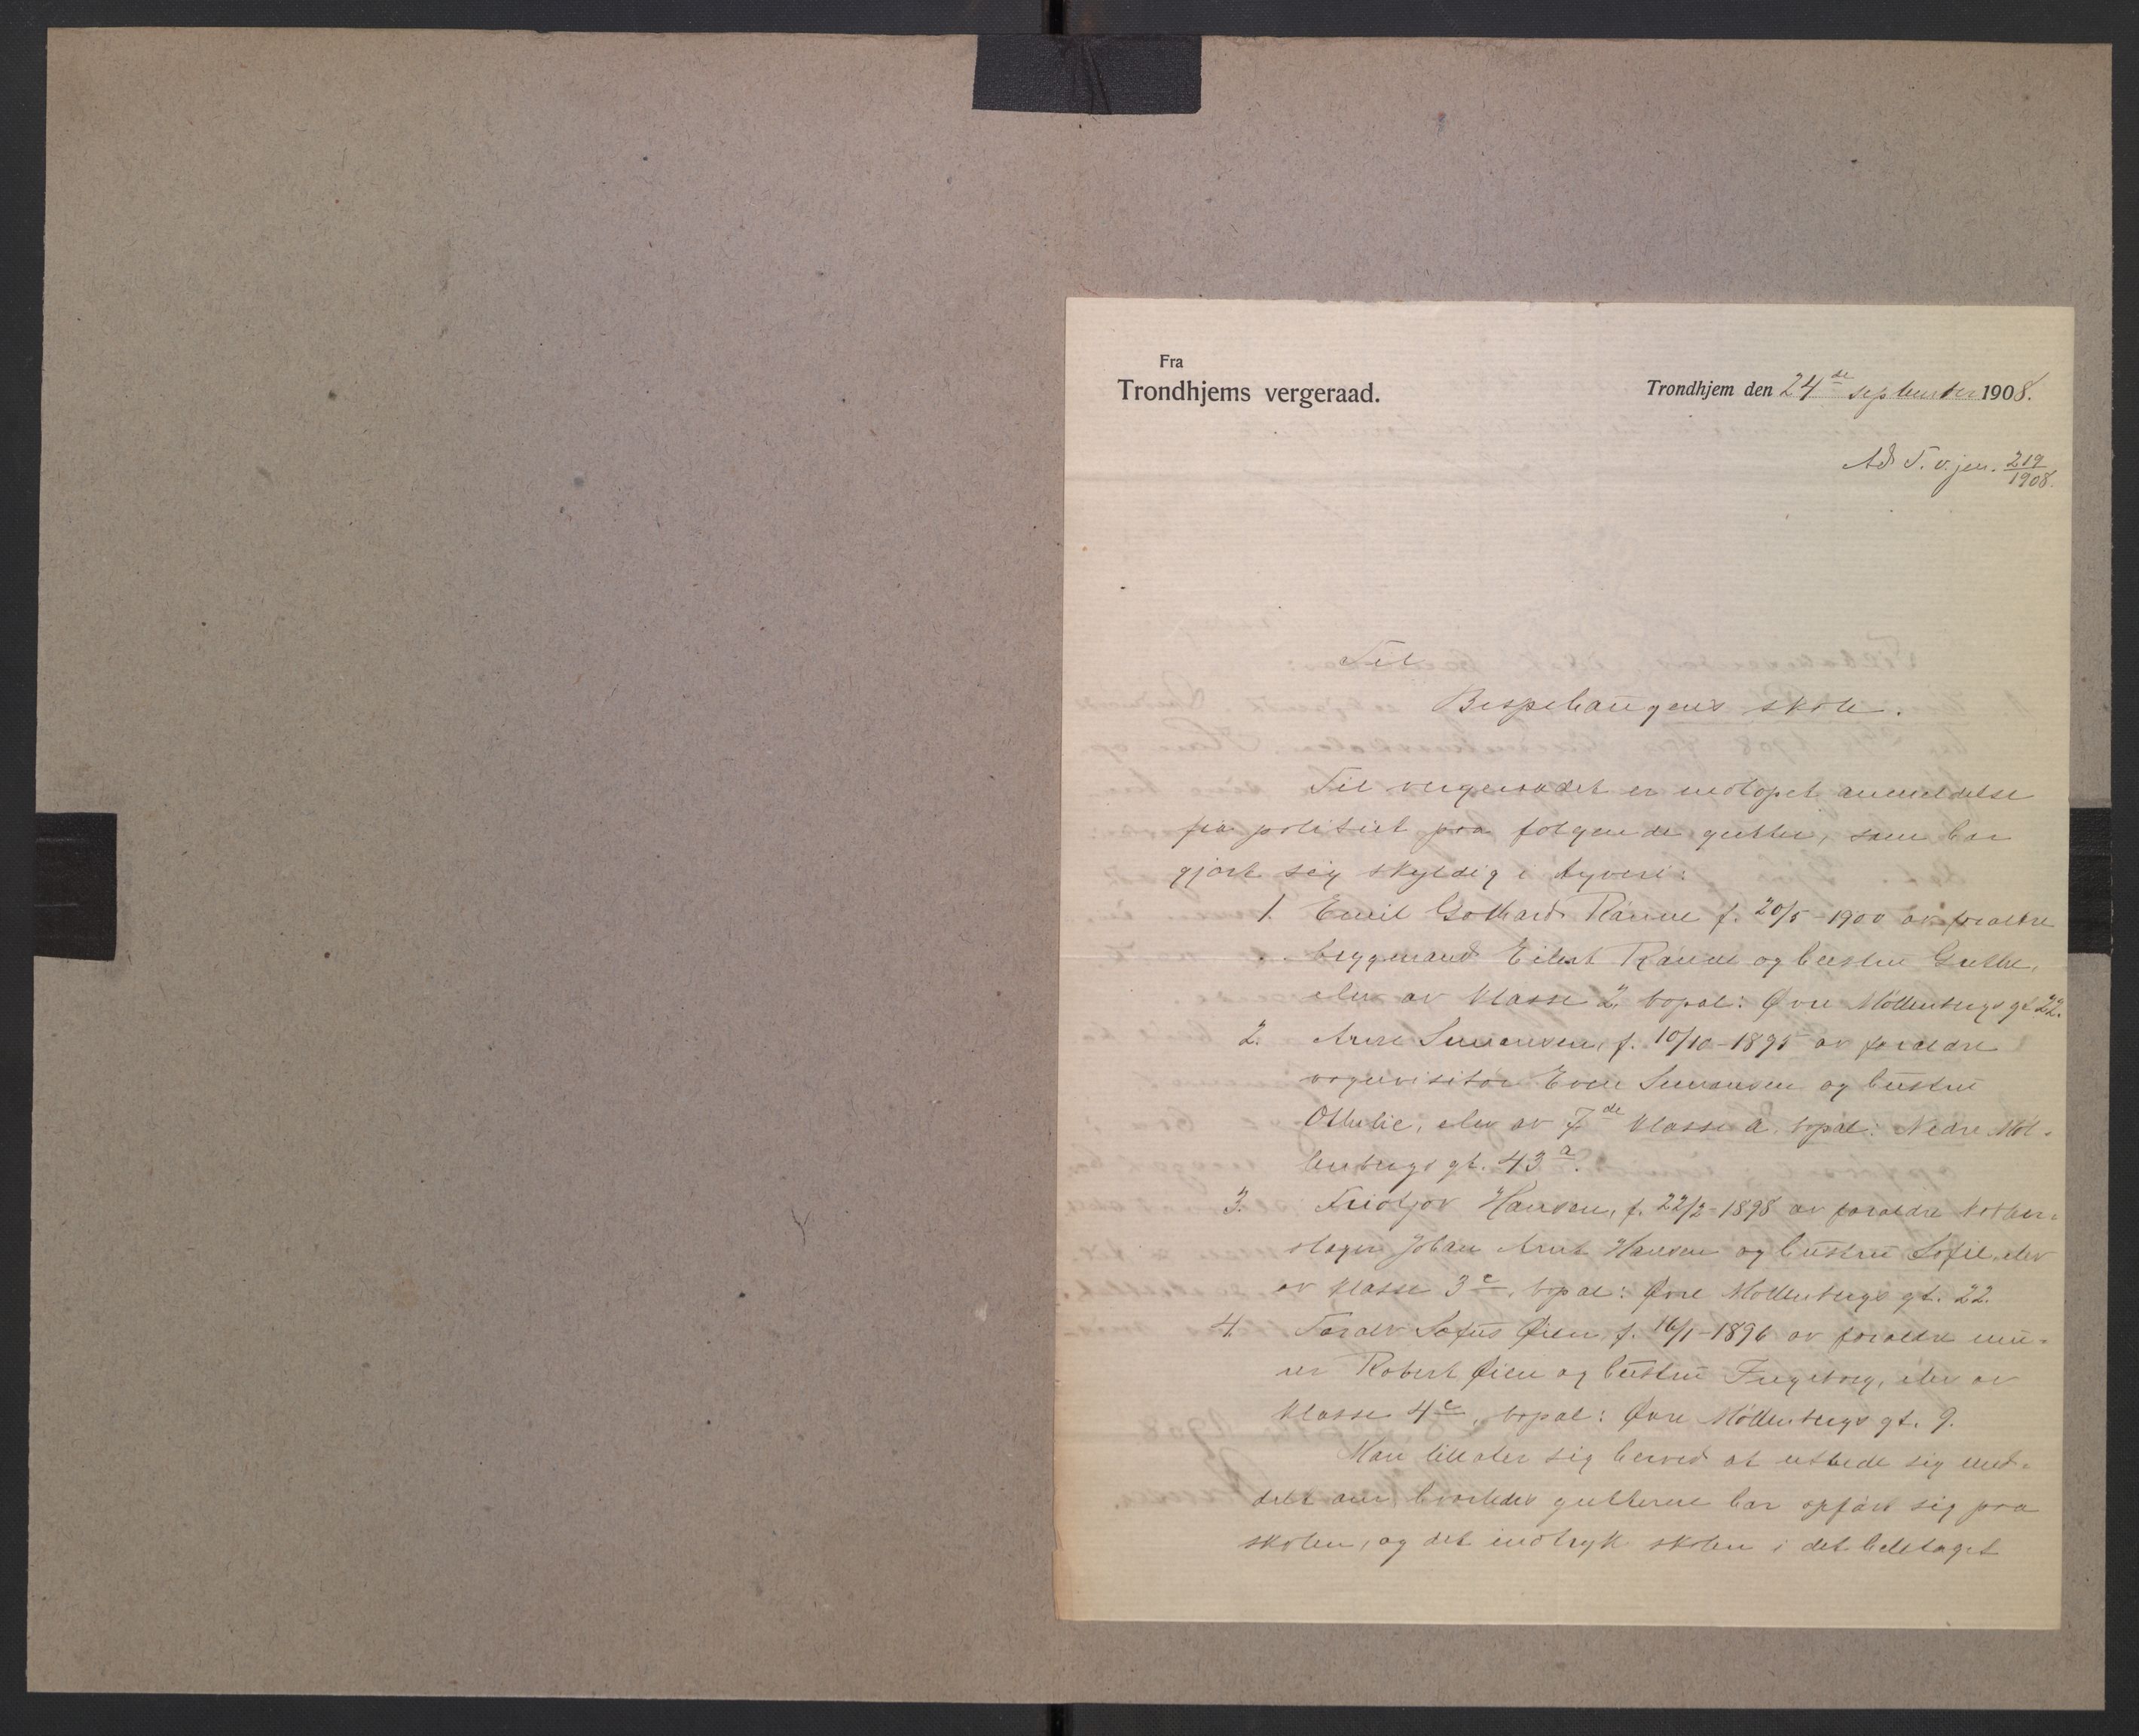 Fra
Trondhjems vergeraad.
Trondhjem den 24de september 1908.
Ad T. v. jen. 219/1908.
Til
Bispehaugens skole.
Til vergeraadet er indløpet anmeldelse
fra politiet paa følgende gutter, som har
gjort sig skyldig i tyveri:
1. Emil Gothard Rånne f. 20/5-1900 av foraldre
bryggemand Eilert Rånne og hustru Grethe,
elev av klasse 2, bopæl: Øvre Møllenbergs gt 22.
2. Arne Simonsen, f. 10/10-1895 av foraldre
vognvisitør Even Simonsen og hustru
Othelie, elev av 7de klasse a. bopæl: Nedre Møl-
lenbergs gt. 43a.
3. Fridtjov Hansen, f. 22/2-1898 av foraldre kobber-
slager Johan Arnt Hansen og hustru Sofie, elev
av klasse 3c, bopæl: Øvre Møllenbergs gt. 22.
4. Toralv Sofus Øien, f. 16/1-1896 av foraldre mu-
rer Robert Øien og hustru Ingeborg, elev av
klasse 4c, bopæl: Øvre Møllenbergs gt. 9.
Man tillater sig herved at utbede sig med-
delt om hvorledes gutterne har opført sig paa
skolen, og det indtryk skolen i det heletaget